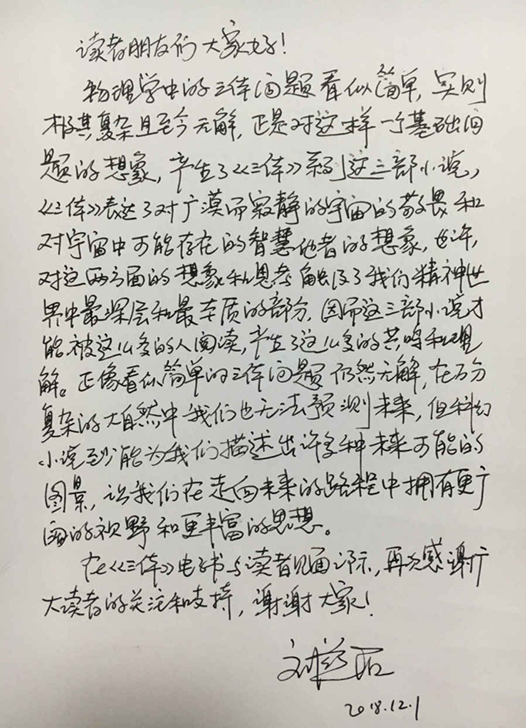 读者朋友们大家好!
物理学中的三体问题看似简单,实则
极其复杂且至今无解,正是对这样一个基础问
题的想象,产生了《三体》系列这三部小说,
《三体》表达了对广漠而寂静的宇宙的敬畏和
对宇宙中可能存在的智慧他者的想象,也许,
对这两方面的想象和思考触及了我们精神世
界中最深层和最本质的部分,因而这三部小说才
能被这么多的人阅读,产生了这么多的共鸣和理
解。正像看似简单的三体问题仍然无解,在万分
复杂的大自然中我们也无法预测未来,但科幻
小说至少能为我们描述出许多种未来可能的
图景,让我们在走向未来的路程中拥有更广
阔的视野和更丰富的思想。
在《三体》电子书与读者见面之际,再次感谢广
大读者的关注和支持,谢谢大家!
刘慈欣
2018.12.1